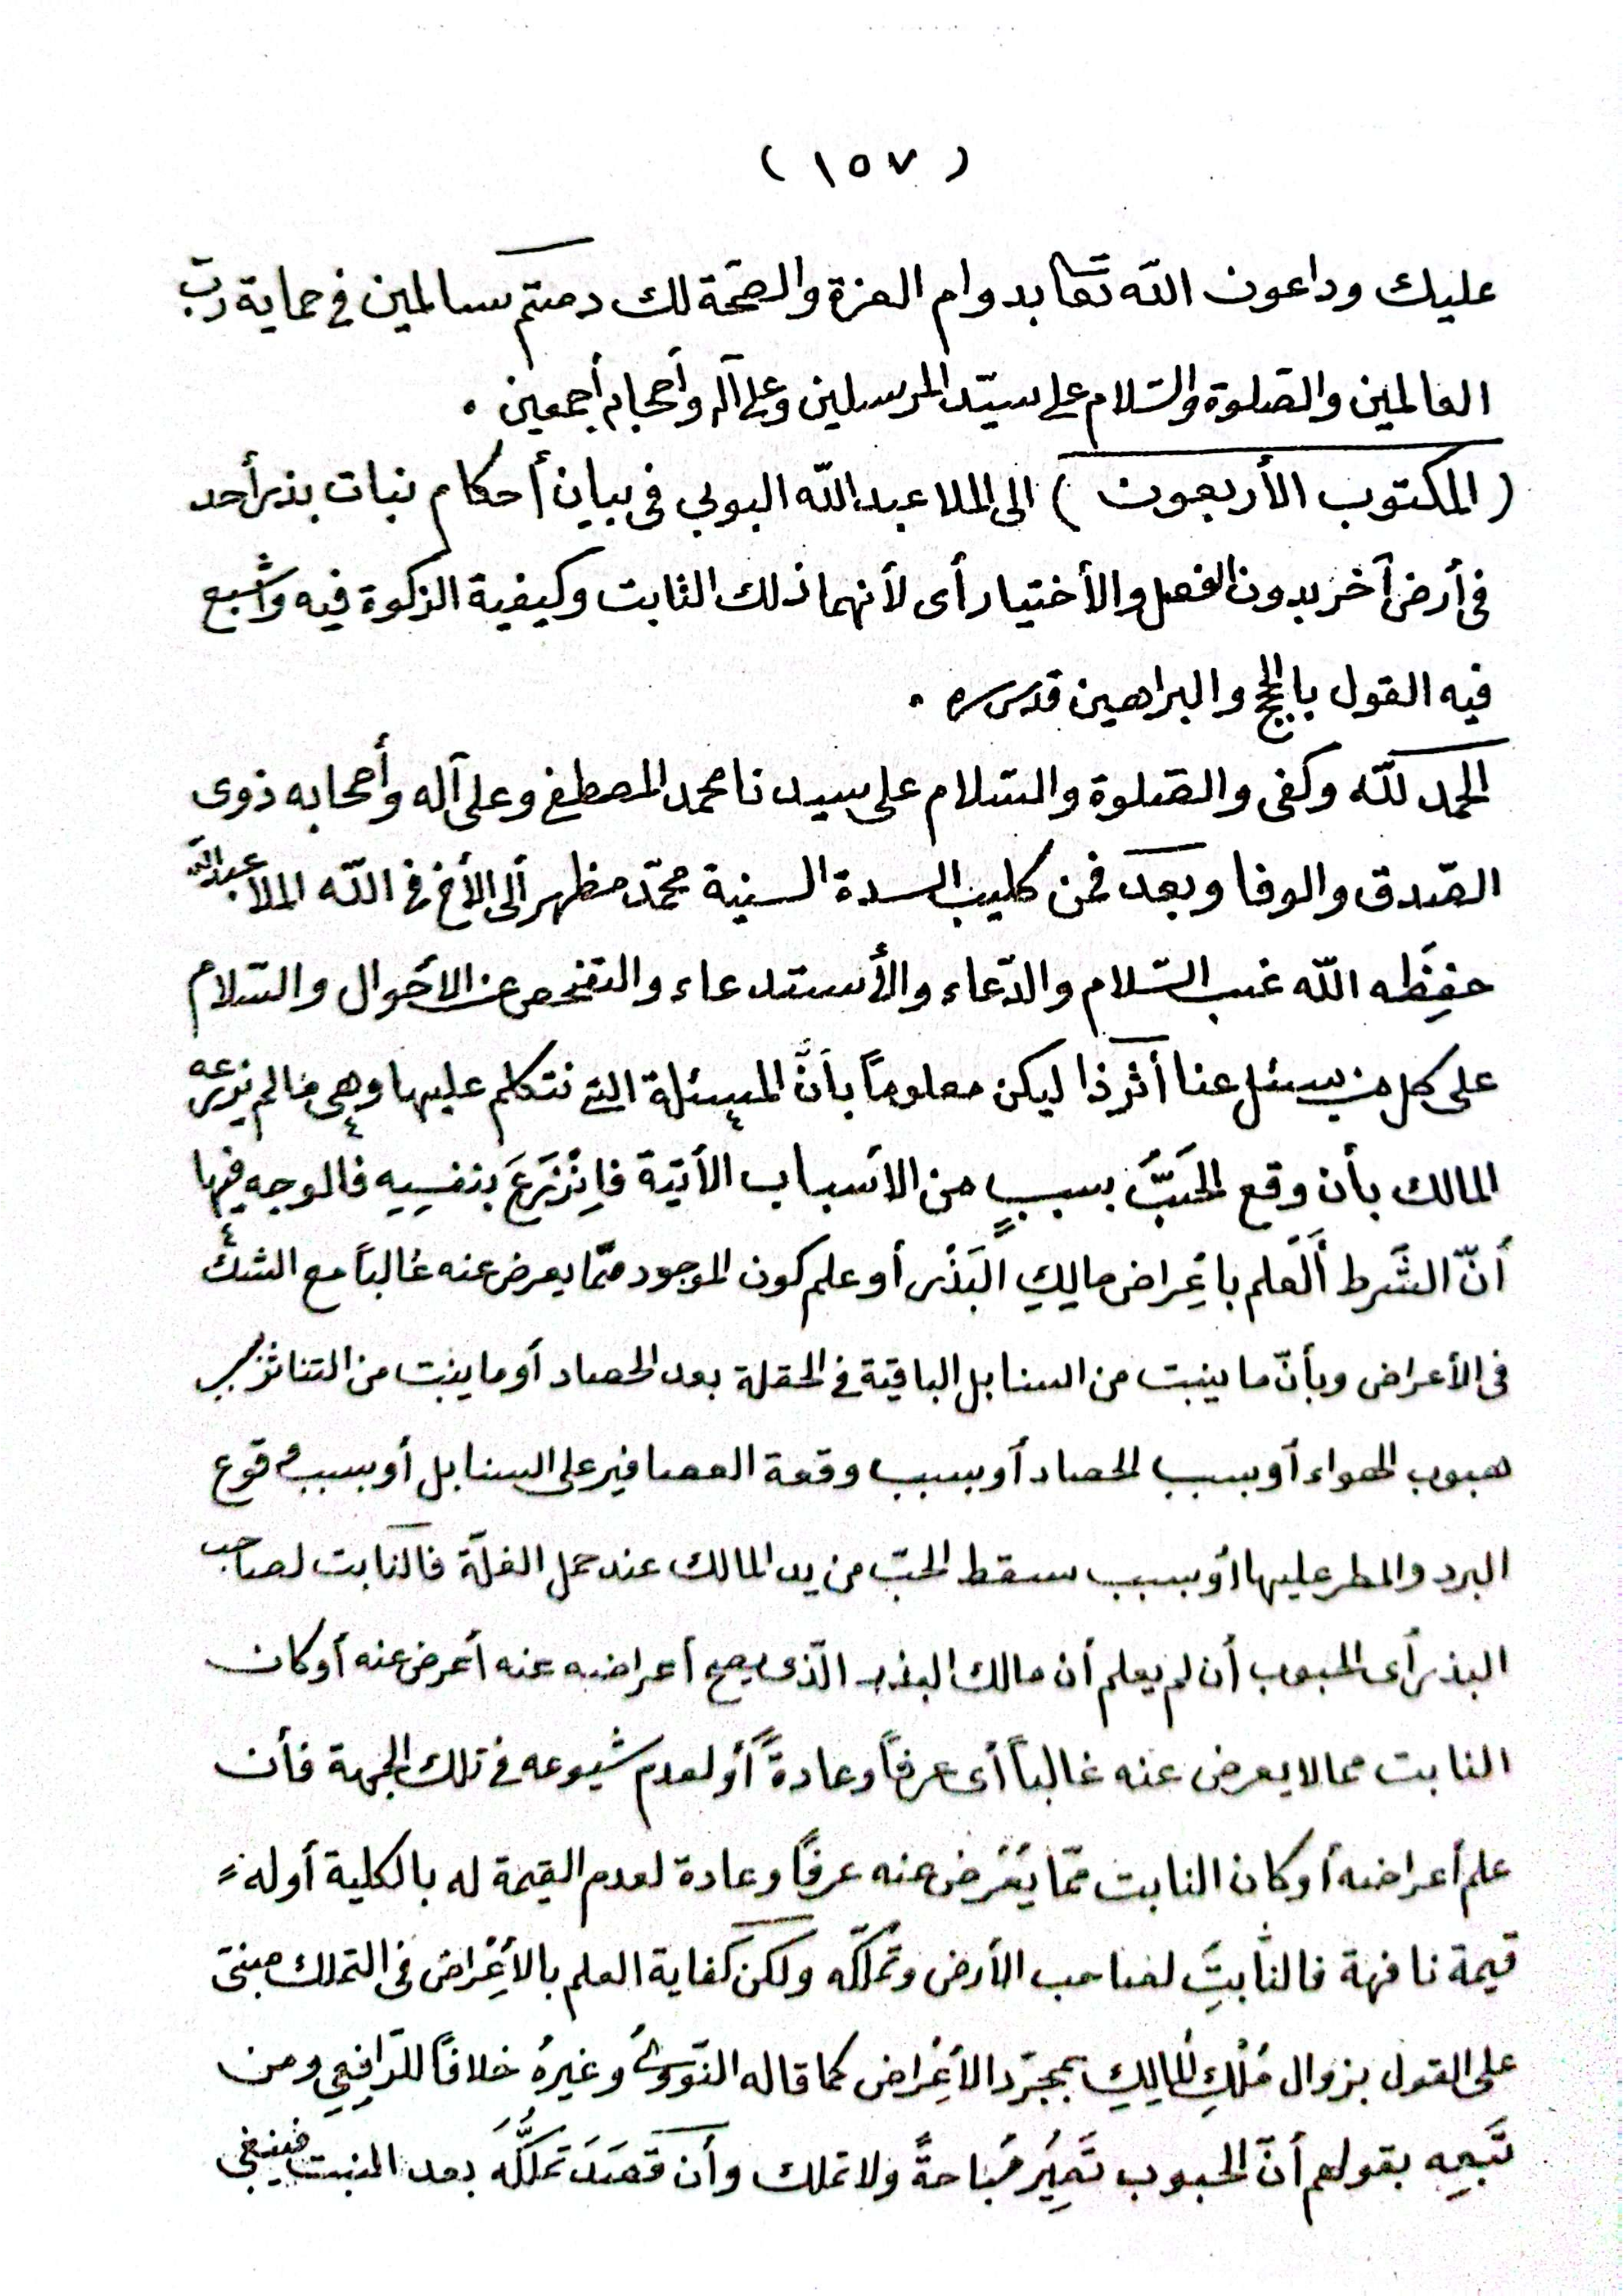 ( ١٥٧ )
عليك وداعون الله تعا بدوام العزة والصحّة لك دمتم سالمين في حماية ربّ
العالمين والصّلوة والسّلام على سيّد المرسلين وعلى آله وأصحابه أجمعين .
( المكتوب الأربعون ) الى الملا عبدالله البوبي في بيان أحكام نبات بذر أحد
في أرض آخر بدون الفعل والأختيار أى لأنهما ذلك الثابت وكيفية الزكوة فيه وأشبع
فيه القول بالحجج والبراهين قدس سره .
الحمد لله وكفى والصّلوة والسّلام على سيدنا محمد المصطفى وعلى آله وأصحابه ذوى
الصّدق والوفا وبعد فمن كليب السدة السنية محمّد مظهر ألى الأخ في الله الملا عبدالله
حفِظَه الله غب السّلام والدّعاء والأستدعاء والتفحص عن الأحوال والسّلام
على كل من يسئل عنا أثرذا ليكن معلوماً بأنَّ المسئلة التي نتكلم عليها وهي ما لم يزرعه
المالك بأن وقع الحَبَّ بسببٍ من الأسباب الأتية فاِنْزَرَعَ بنفسِهِ فالوجه فيها
أنّ الشَّرط أَلعلم باِعْراض مالِكِ البَذْر أو علم كون الموجود ممّا يعرض عنه غالباً مع الشك
في الأعراض وبأنّ ما ينبت من السنابل الباقية في الحقلة بعد الحصاد أو ما ينبت من التناثر بسبب
هبوب الهواء أو بسبب الحصاد أو بسبب وقعة العصافير على السنابل أو بسبب وقوع
البرد والمطر عليها أو بسبب سقط الحبّ من يد المالك عند حمل الغلّة فالنابت لصاحب
البذر أى الحبوب أن لم يعلم أن مالك البذر الّذى يصح أعراضه عنه أعرض عنه أو كان
النابت مما لا يعرض عنه غالباً أى عرفاً وعادةً أو لعدم شيوعه في تلك الجهة فأن
علم أعراضه أو كان النابت ممّا يَعْرض عنه عرفاً وعادة لعدم القيمة له بالكلية أوله
قيمة تافهة فالنّابتِ لصاحب الأرض وتملّكه ولكن كفاية العلم بالأِعْراض في التملك مبنيّ
على القول بزوال مُلْكِ المالِكِ بمجرّد الأِعْراض كما قاله النّووىُّ وغيرهُ خلافاً للرّافِعِي ومن
تَبِعه بقولهم أنّ الحبوب تَصِيُر مُباحةً ولا تملك وأن قَصَدَ تملُّكَه بعد المنبت فينبغى